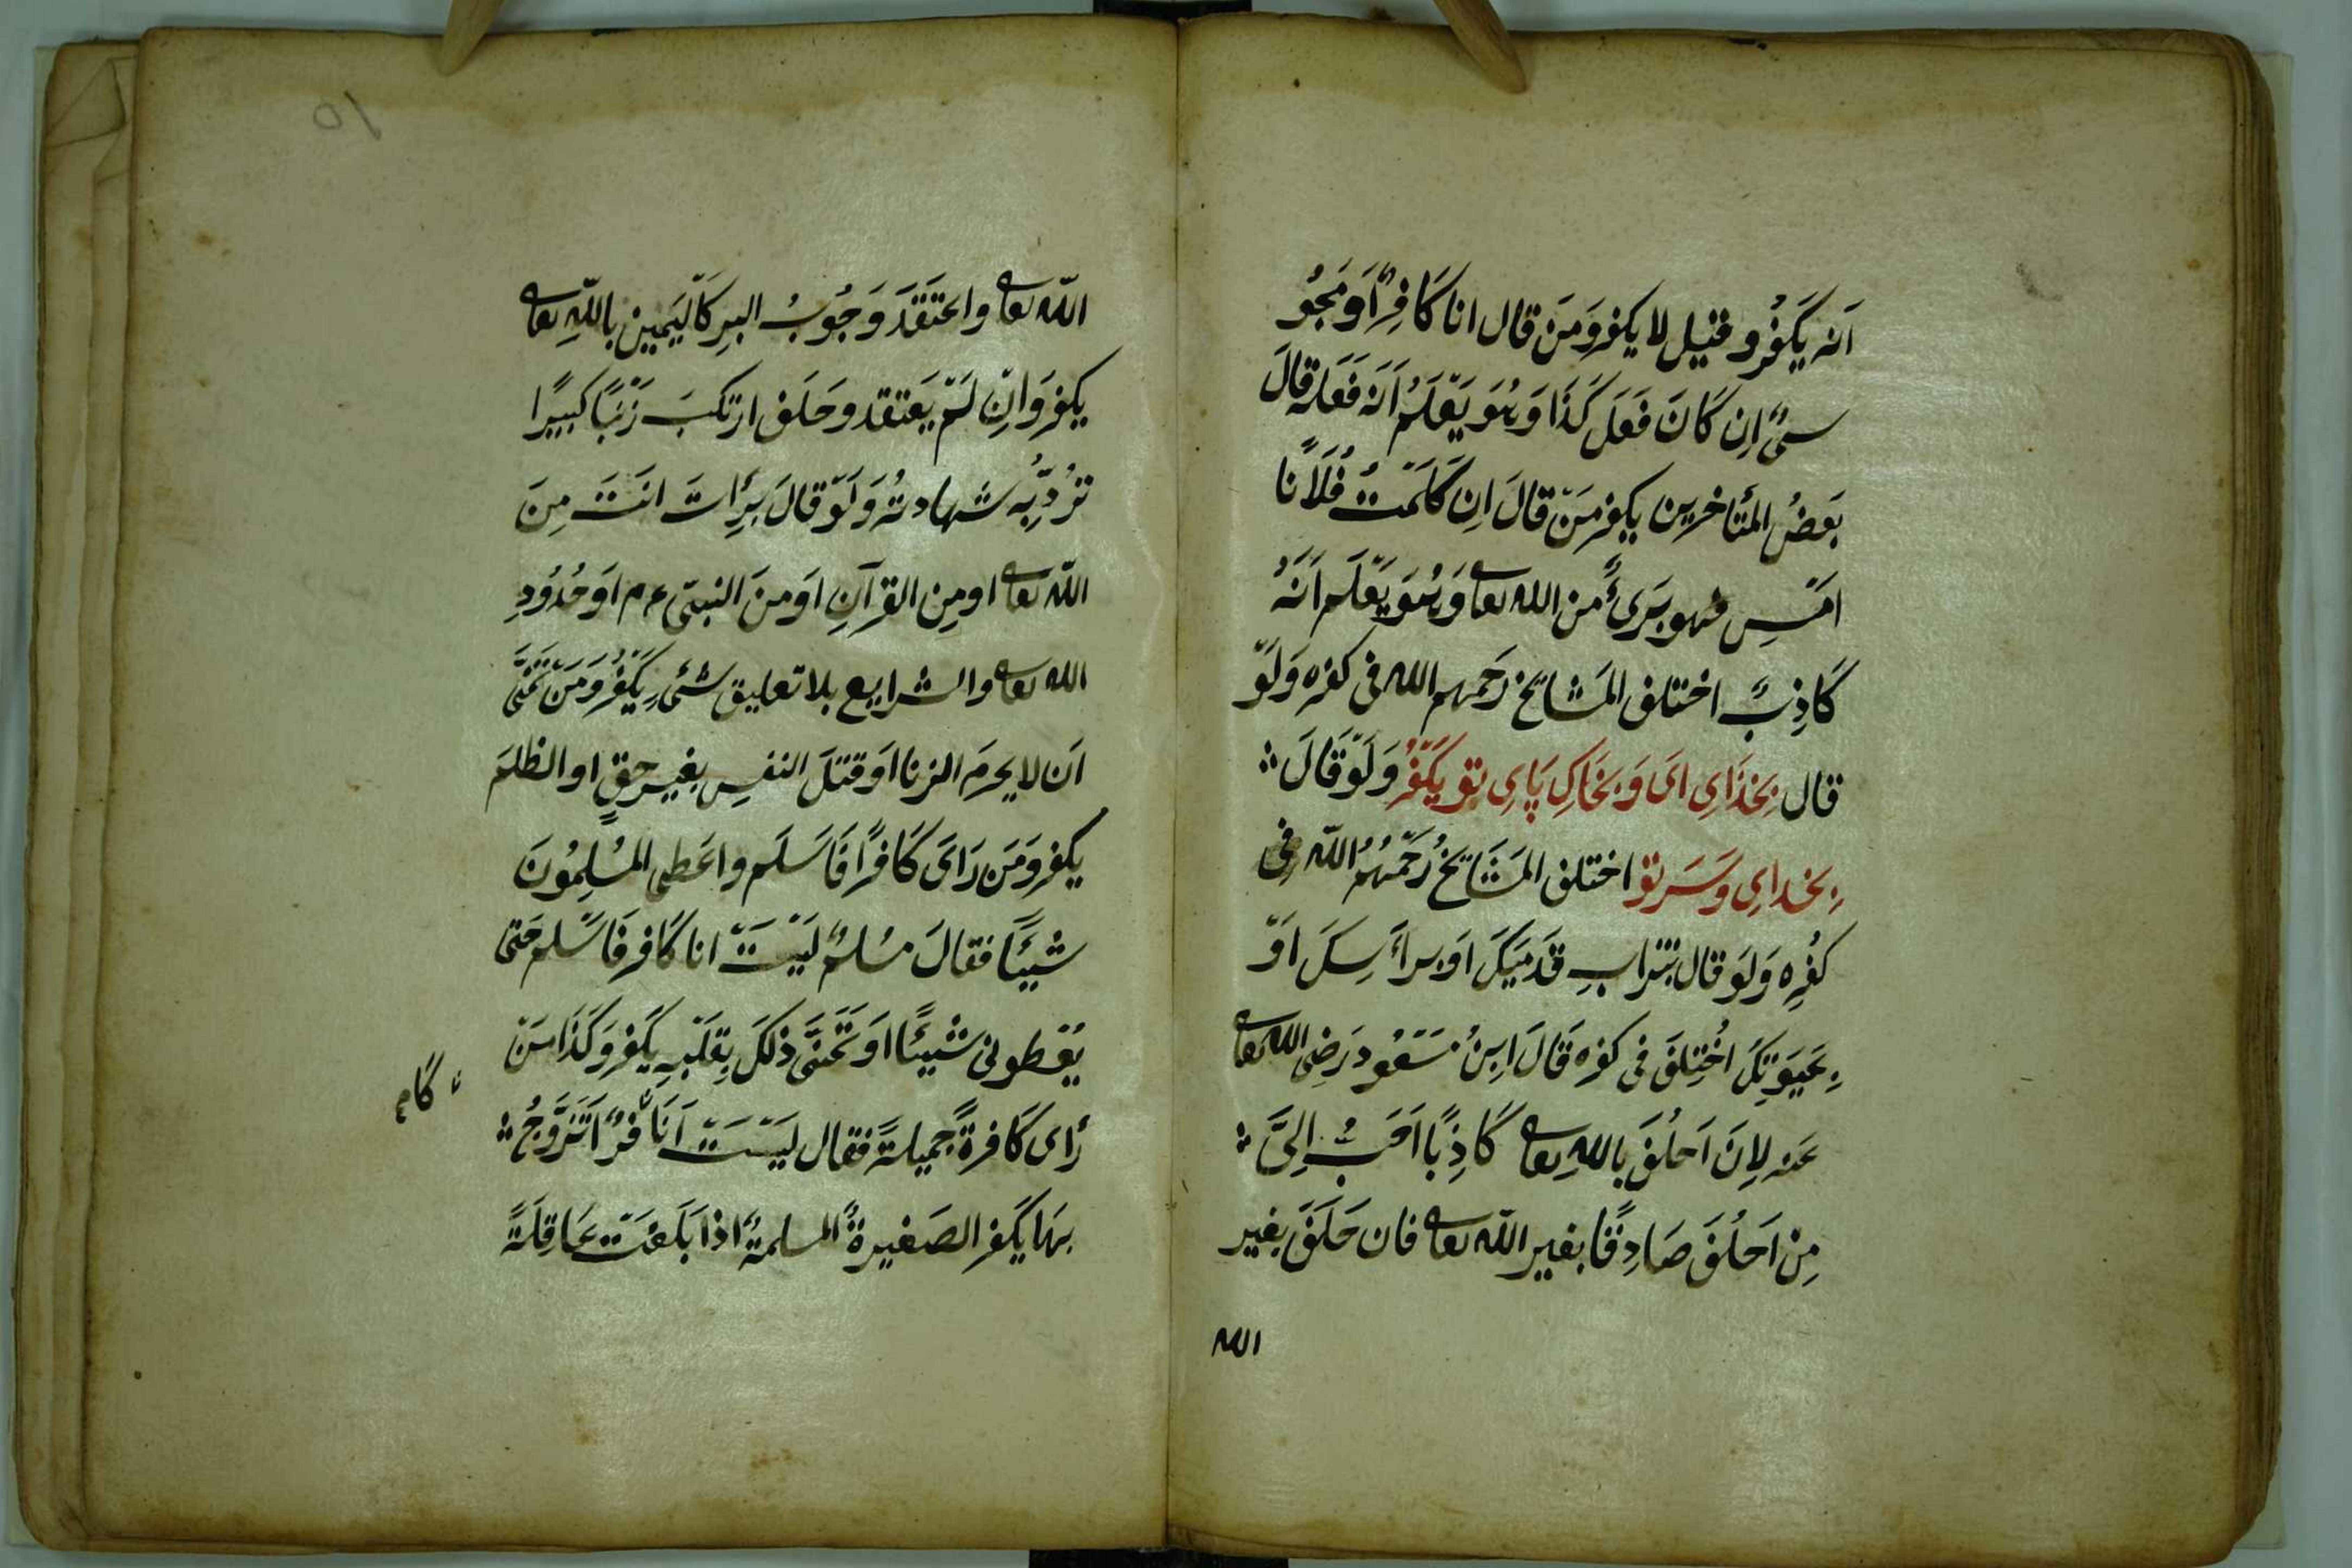 اَنه يَكفُر و قيل لا يكفر وَمَن قال انا كَافِرٌ اَو مَجُو
سىٌّ اِن كَانَ فَعَلَ كَذَا وَهُوَ يَعْلَمُ اَنه فَعَلَه قالَ
بَعضُ المتَأخرين يكفر مَن قالَ اِن كَلَمْتُ فُلَانًا
اَمْسِ فهو بَرىءٌ من الله تعا وَهُوَ يَعْلَم اَنَّهُ
كَاذِبٌ اختلف المشَايخ رَحَمهم الله فى كفره وَلَوْ
قال بِخذَاىِ اى وَبخَاكِ پَاىِ تو يَكفُر وَلَوْ قَالَ
بِخداىِ وَسَرِ تو اختلف المَشَايخُ رَحَمَهُمُ الله فى
كفُرِه وَلَو قال بتُرابِ قَدَمَيكَ اَو بِرأسِكَ اَوْ
بِحَيوتِكَ اُختِلفَ فى كفره قَالَ ابنُ مَسْعُود رَضِى الله تعا
عَنه لِاَن اَحلُفَ بِالله تعا كَاذِبًا اَحَبُّ اِلىَّ
مِنْ اَحلُفَ صَادِقًا بغير الله تعا فان حَلَفَ بغير
الله
١٥
الله تعا واعتَقَدَ وَجُوبُ البرِ كَاليَمين باللهِ تعا
يكفر وَانِ لَمْ يَعتقد و حَلَف ارتكبَ ذَنْبًا كبيرًا
تُردُّ بِه شهادتُه وَلَوْ قالَ بَرِأتَ انتَ مِنَ
الله تعا او مِن القرآنِ اَو مِنَ النبىّ عم اَو حُدُودِ
الله تعا والشرايع بلا تعليق شئ يَكفُر وَمَنْ تَمَنَّى
اَن لا يحرمَ الزنا اَو قتلَ النفسِ بغير حقٍ او الظلمَ
يكفر وَمَن رَاى كَافرًا فَاَسلَم واعَطى المُسْلِمُونَ
شَيئًا فقالَ مسُلمٌ لَيْتَ انا كَافر فَاَسْلم حَتى
يُعْطونى شَيئًا اَو تَمَنَّى ذلكَ بِقلْبِه يكَفر وَكَذَا مَنْ
رأى كَافرةً جميلةً فقال لَيْتَ اَنَا كافرٌ اَتَزَوَّجُ
بهَا يكَفر الصَغيرةُ المسلمةُ اذَا بَلَغَت عَاقِلَةً